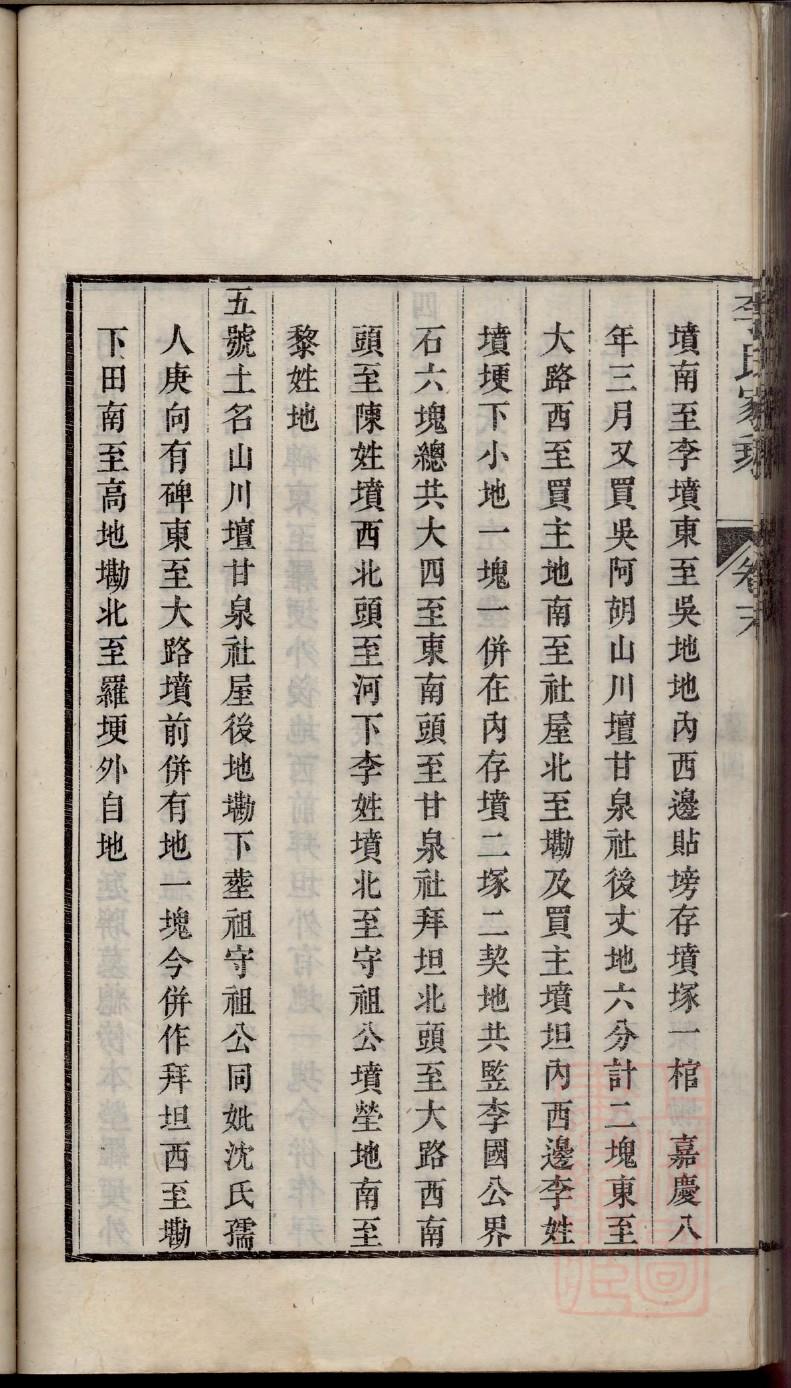 李氏家乘 卷末
墳南至李墳東至吳地地內西邊貼塝存墳塚一棺 嘉慶八
年三月又買吳阿胡山川壇甘泉社後丈地六分計二塊東至
大路西至買主地南至社屋北至墈及買主墳坦內西邊李姓
墳埂下小地一塊一併在內存墳二塚二契地共監李國公界
石六塊總共大四至東南頭至甘泉社拜坦北頭至大路西南
頭至陳姓墳西北頭至河下李姓墳北至守祖公墳塋地南至
黎姓地
五號土名山川壇甘泉社屋後地墈下塟祖守祖公同妣沈氏孺
人庚向有碑東至大路墳前併有地一塊今併作拜坦西至墈
下田南至高地墈北至羅埂外自地